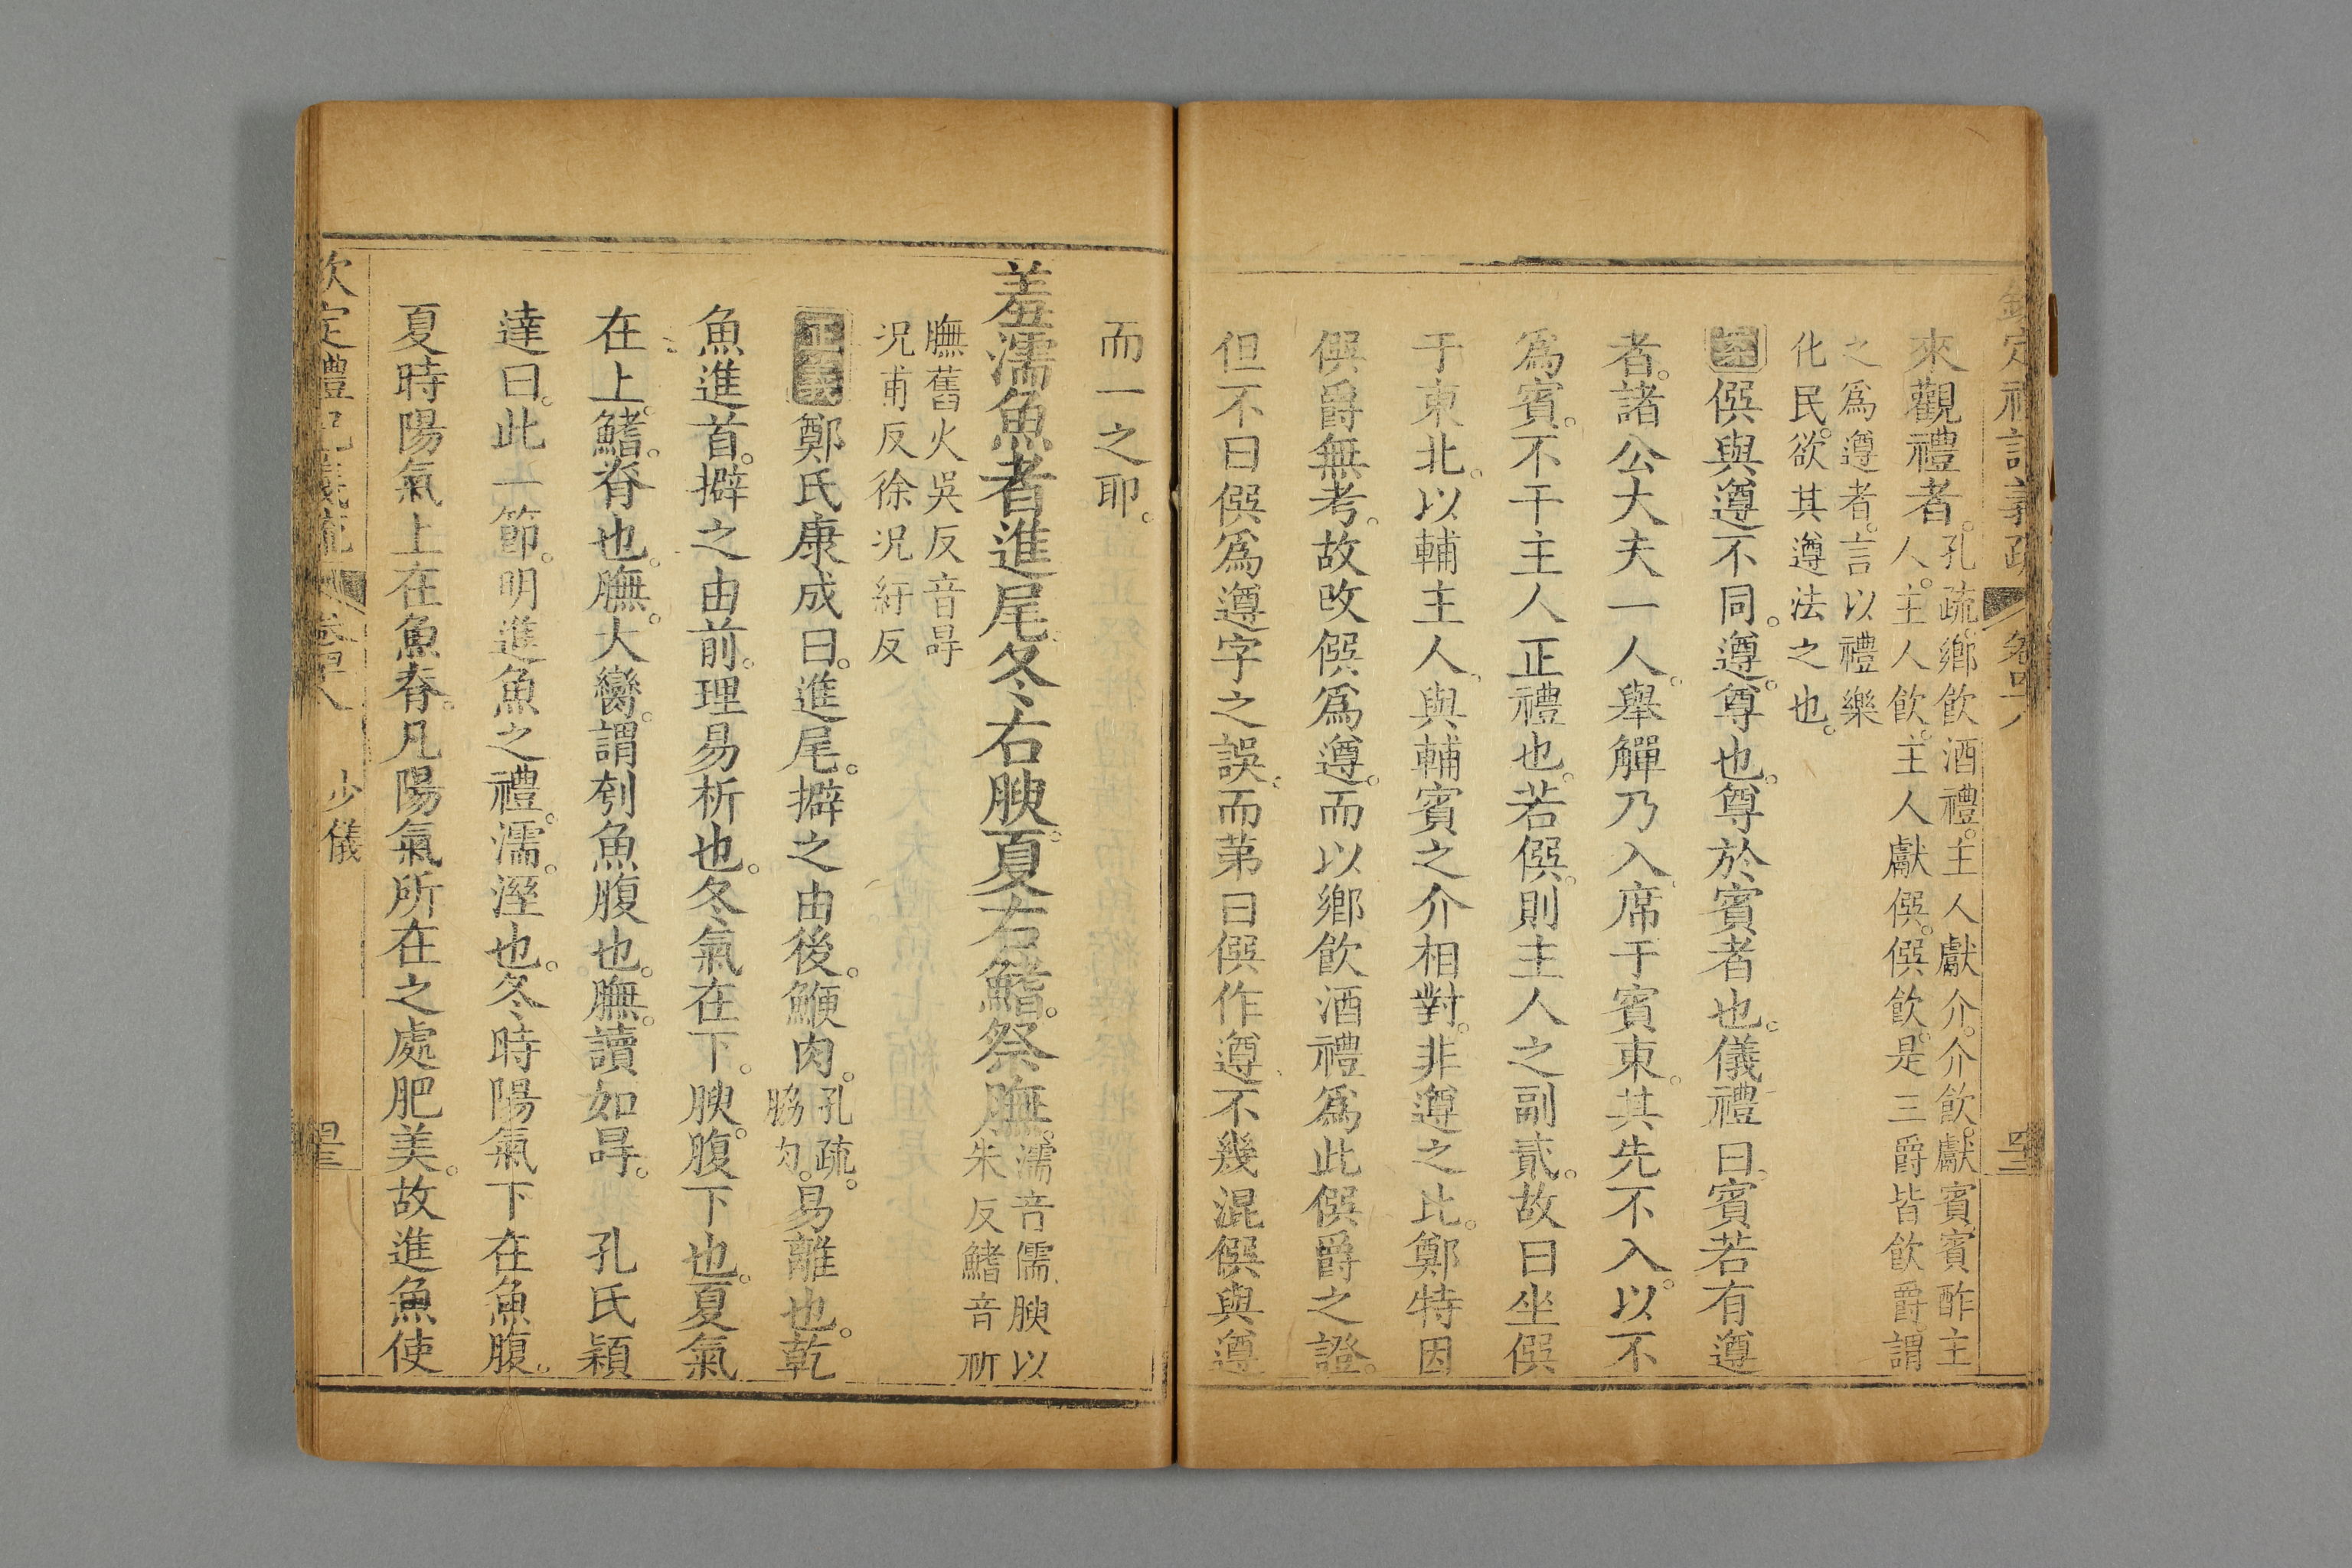 欽定禮記義疏 卷四十八 四三
來觀禮者。孔疏。鄉飲酒禮。主人獻介。介飲。獻賓賓酢主
人。主人飲。主人獻僎。僎飲。是三爵皆飲爵謂
之爲遵者。言以禮樂
化民。欲其遵法之也。
案僎與遵不同。遵。尊也。尊於賓者也。儀禮曰。賓若有遵
者。諸公大夫一人。舉觶乃入。席于賓東。其先不入。以不
爲賓。不干主人正禮也。若僎。則主人之副貳。故曰坐僎
于東北。以輔主人。與輔賓之介相對。非遵之比。鄭特因
僎爵無考。故改僎爲遵。而以鄉飲酒禮爲此僎爵之證。
但不曰僎爲遵字之誤。而苐曰僎作遵、不幾混僎與遵
而一之耶。
羞濡魚者進尾。冬右腴。夏右鰭。祭膴。濡音儒。腴以
朱反鰭音祈
膴舊火吳反音冔
況甫反徐況紆反
正義鄭氏康成曰。進尾。擗之由後。鯁肉。孔疏。
脇肉。易離也。乾
魚進首。擗之由前。理易析也。冬氣在下。腴。腹下也。夏氣
在上。鰭。脊也。膴。大臠。謂刳魚腹也。膴。讀如冔。 孔氏穎
達曰。此一節。明進魚之禮。濡。溼也。冬時陽氣下在魚腹。
夏時陽氣上在魚脊。凡陽氣所在之處肥美。故進魚使
欽定禮記義疏 卷四十八 少儀 四三